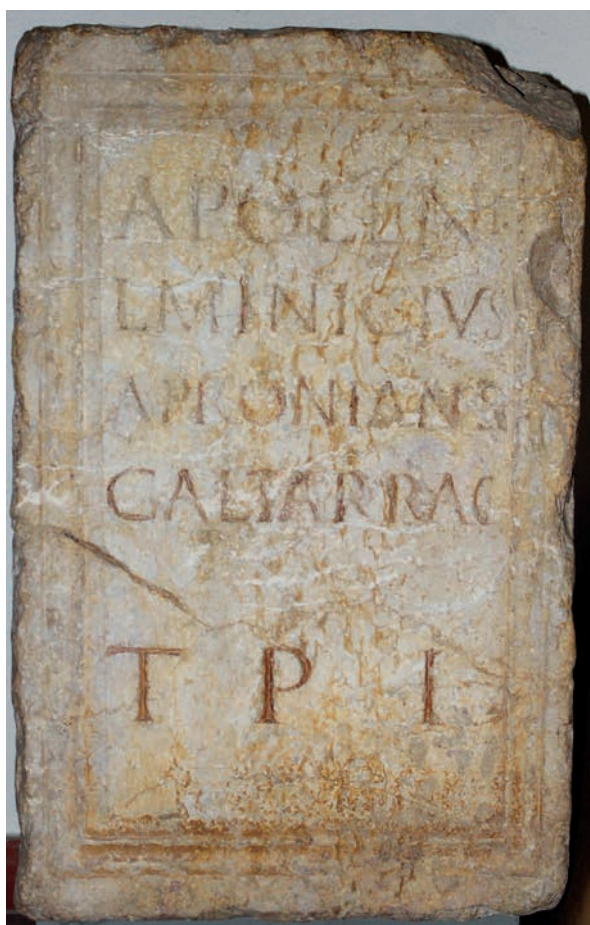 APOLLINI
L MINICIVS
APRONIANVS
GAL TARRAC
T P I